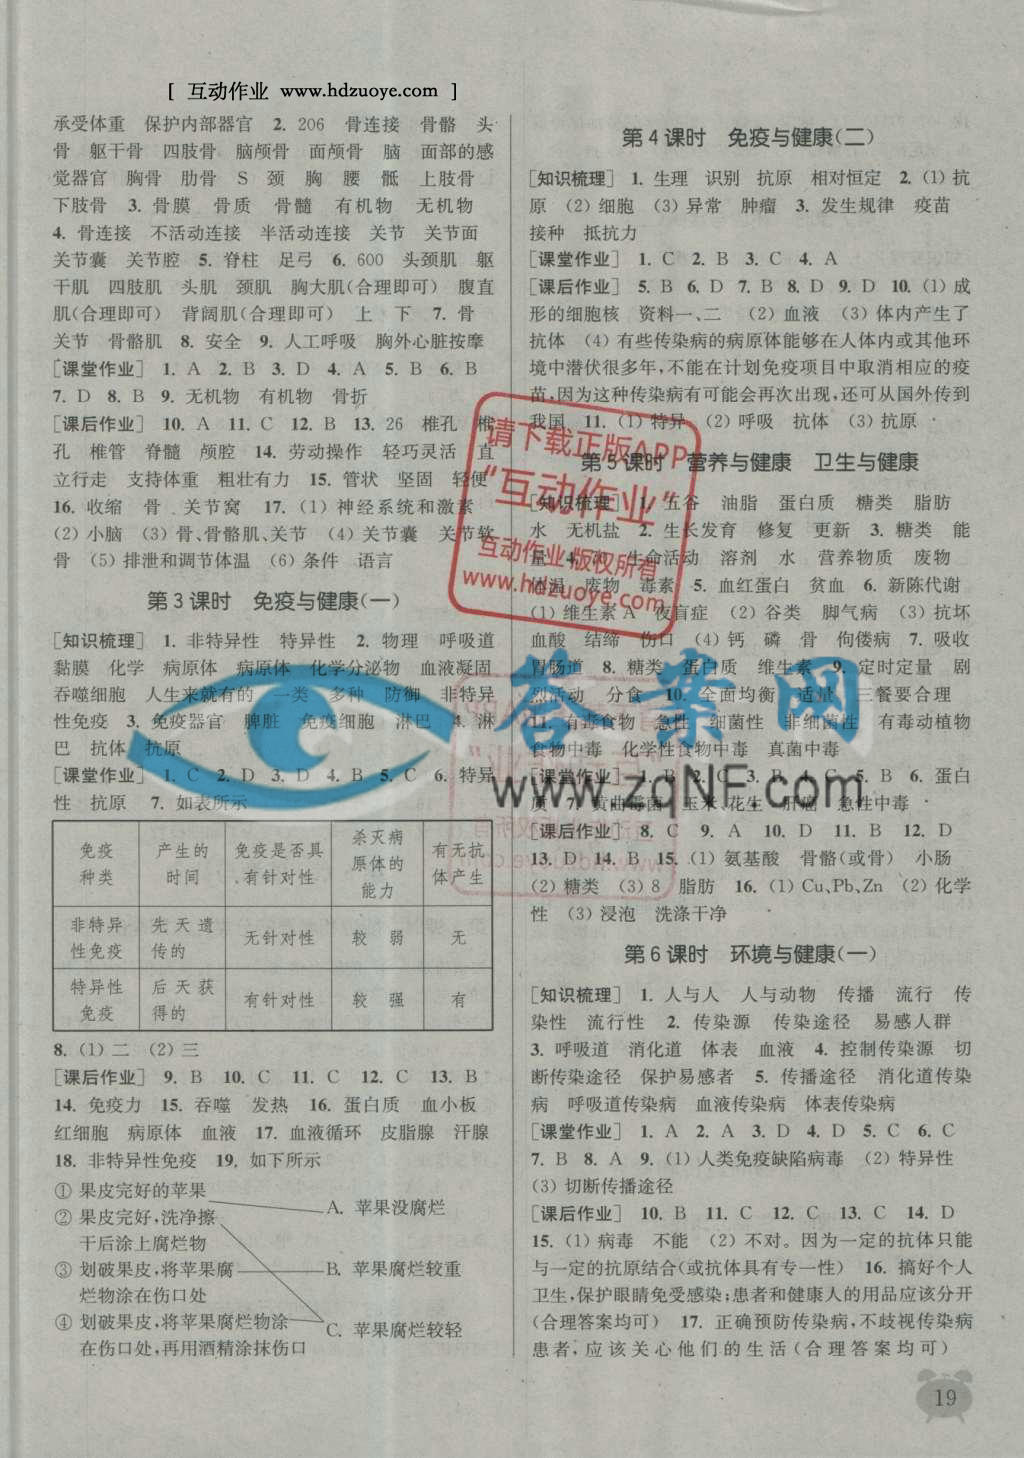 [ 互动作业 www.hdzuoye.com ]
承受体重 保护内部器官 2. 206 骨连接 骨骼 头
骨 躯干骨 四肢骨 脑颅骨 面颅骨 脑 面部的感
觉器官 胸骨 肋骨 S 颈 胸 腰 骶 上肢骨
下肢骨 3. 骨膜 骨质 骨髓 有机物 无机物
4. 骨连接 不活动连接 半活动连接 关节 关节面
关节囊 关节腔 5. 脊柱 足弓 6. 600 头颈肌 躯
干肌 四肢肌 头肌 颈肌 胸大肌(合理即可) 腹直
肌(合理即可) 背阔肌(合理即可) 上 下 7. 骨
关节 骨骼肌 8. 安全 9. 人工呼吸 胸外心脏按摩
[课堂作业] 1. A 2. B 3. D 4. A 5. B 6. B
7. D 8. B 9. 无机物 有机物 骨折
[课后作业] 10. A 11. C 12. B 13. 26 椎孔 椎
孔 椎管 脊髓 颅腔 14. 劳动操作 轻巧灵活 直
立行走 支持体重 粗壮有力 15. 管状 坚固 轻便
16. 收缩 骨 关节窝 17. (1) 神经系统和激素
(2) 小脑 (3) 骨、骨骼肌、关节 (4) 关节囊 关节软
骨 (5) 排泄和调节体温 (6) 条件 语言
第 3 课时 免疫与健康(一)
[知识梳理] 1. 非特异性 特异性 2. 物理 呼吸道
黏膜 化学 病原体 病原体 化学分泌物 血液凝固
吞噬细胞 人生来就有的 一类 多种 防御 非特异
性免疫 3. 免疫器官 脾脏 免疫细胞 淋巴 4. 淋
巴 抗体 抗原
[课堂作业] 1. C 2. D 3. D 4. B 5. C 6. 特异
性 抗原 7. 如表所示
免疫种类 产生的时间 免疫是否具有针对性 杀灭病原体的能力 有无抗体产生
非特异性免疫 先天遗传的 无针对性 较弱 无
特异性免疫 后天获得的 有针对性 较强 有
8. (1) 二 (2) 三
[课后作业] 9. B 10. C 11. C 12. C 13. B
14. 免疫力 15. 吞噬 发热 16. 蛋白质 血小板
红细胞 病原体 血液 17. 血液循环 皮脂腺 汗腺
18. 非特异性免疫 19. 如下所示
① 果皮完好的苹果
② 果皮完好,洗净擦
干后涂上腐烂物
③ 划破果皮,将苹果腐
烂物涂在伤口处
④ 划破果皮,将苹果腐烂物涂
在伤口处,再用酒精涂抹伤口
A. 苹果没腐烂
B. 苹果腐烂较重
C. 苹果腐烂较轻
第 4 课时 免疫与健康(二)
[知识梳理] 1. 生理 识别 抗原 相对恒定 2. (1) 抗
原 (2) 细胞 (3) 异常 肿瘤 3. 发生规律 疫苗
接种 抵抗力
[课堂作业] 1. C 2. B 3. C 4. A
[课后作业] 5. B 6. D 7. B 8. D 9. D 10. (1) 成
形的细胞核 资料一、二 (2) 血液 (3) 体内产生了
抗体 (4) 有些传染病的病原体能够在人体内或其他环
境中潜伏很多年,不能在计划免疫项目中取消相应的疫
苗,因为这种传染病有可能会再次出现,还可从国外传到
我国 11. (1) 特异 (2) 呼吸 抗体 (3) 抗原
第 5 课时 营养与健康 卫生与健康
[知识梳理] 1. 五谷 油脂 蛋白质 糖类 脂肪
水 无机盐 2. 生长发育 修复 更新 3. 糖类 能
量 4. 70 生命活动 溶剂 水 营养物质 废物
体温 废物 毒素 5. 血红蛋白 贫血 6. 新陈代谢
(1) 维生素 A 夜盲症 (2) 谷类 脚气病 (3) 抗坏
血酸 结缔 伤口 (4) 钙 磷 骨 佝偻病 7. 吸收
胃肠道 8. 糖类 蛋白质 维生素 9. 定时定量 剧
烈活动 分食 10. 全面均衡 适量 三餐要合理
11. 有毒食物 急性 细菌性 非细菌性 有毒动植物
食物中毒 化学性食物中毒 真菌中毒
[课堂作业] 1. D 2. B 3. C 4. B 5. B 6. 蛋白
质 7. 黄曲霉菌 玉米、花生 肝癌 急性中毒
[课后作业] 8. C 9. A 10. D 11. B 12. D
13. D 14. B 15. (1) 氨基酸 骨骼(或骨) 小肠
(2) 糖类 (3) 8 脂肪 16. (1) Cu、Pb、Zn (2) 化学
性 (3) 浸泡 洗涤干净
第 6 课时 环境与健康(一)
[知识梳理] 1. 人与人 人与动物 传播 流行 传
染性 流行性 2. 传染源 传染途径 易感人群
3. 呼吸道 消化道 体表 血液 4. 控制传染源 切
断传染途径 保护易感者 5. 传播途径 消化道传染
病 呼吸道传染病 血液传染病 体表传染病
[课堂作业] 1. A 2. A 3. D 4. D 5. C 6. C
7. B 8. A 9. (1) 人类免疫缺陷病毒 (2) 特异性
(3) 切断传播途径
[课后作业] 10. B 11. C 12. C 13. C 14. D
15. (1) 病毒 不能 (2) 不对。因为一定的抗体只能
与一定的抗原结合(或抗体具有专一性) 16. 搞好个人
卫生,保护眼睛免受感染;患者和健康人的用品应该分开
(合理答案均可) 17. 正确预防传染病,不歧视传染病
患者,应该关心他们的生活(合理答案均可)
19
请下载正版APP
“互动作业”
互动作业 版权所有
www.hdzuoye.com
答案网
www.zqNF.com